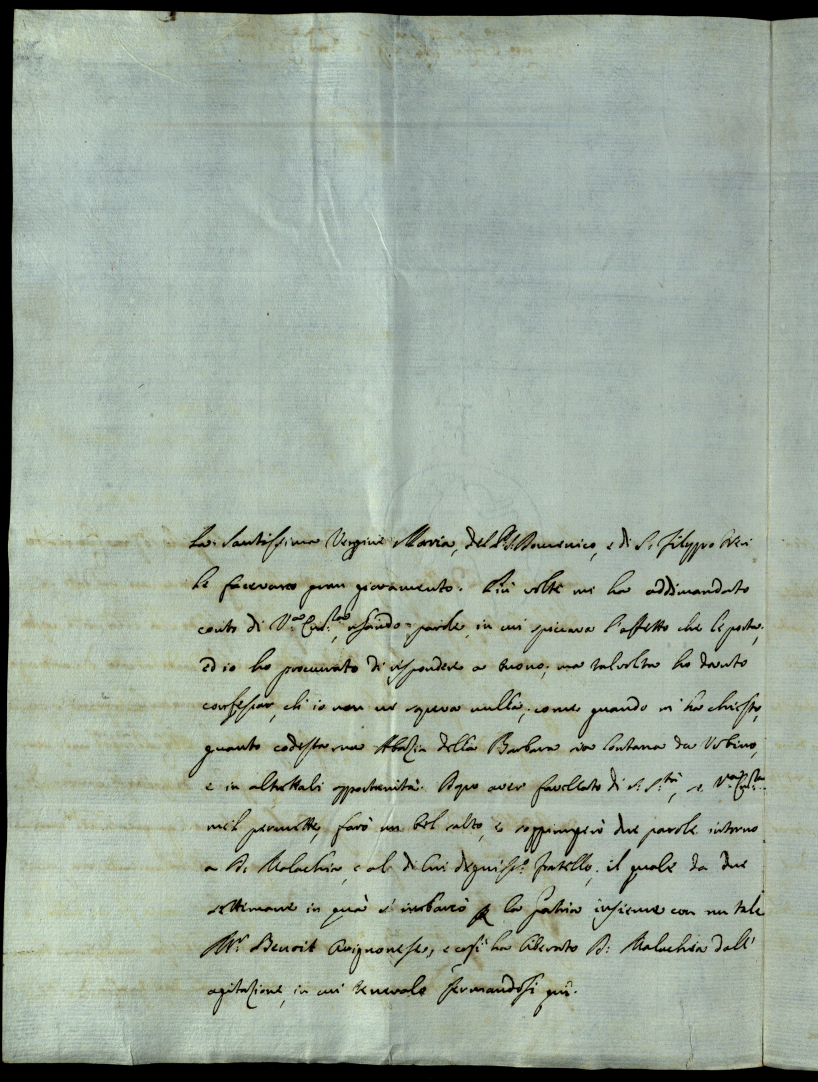 La Santissima Vergine Maria, del P. S. Domenico, e di S. Filippo Neri
le facevano gran giovamento. Più volte mi ha addimandato
conto di V.ra, usando parole, in cui spiccava l'affetto che le porta,
ed io ho procurato di rispondere a tuono, ma talvolta ho dovuto
confessar, ch'io non ne sapeva nulla, come quando mi ha chiesto,
quanto codesta sua Abazia della Barbara sia lontana da Urbino,
e in altrettali opportunità. Dopo aver favellato di S. S.tà, se V.ra
mel permette, farò un bel salto, e soggiungerò due parole intorno
a D. Malachia, e al di lui degniss.o fratello, il quale da due
settimane in quà s'imbarcò p la Patria insieme con un tale
M.r Benoit Avignonese, e così ha liberato D. Malachia dall'
agitazione, in cui tenevalo fermandosi quì.